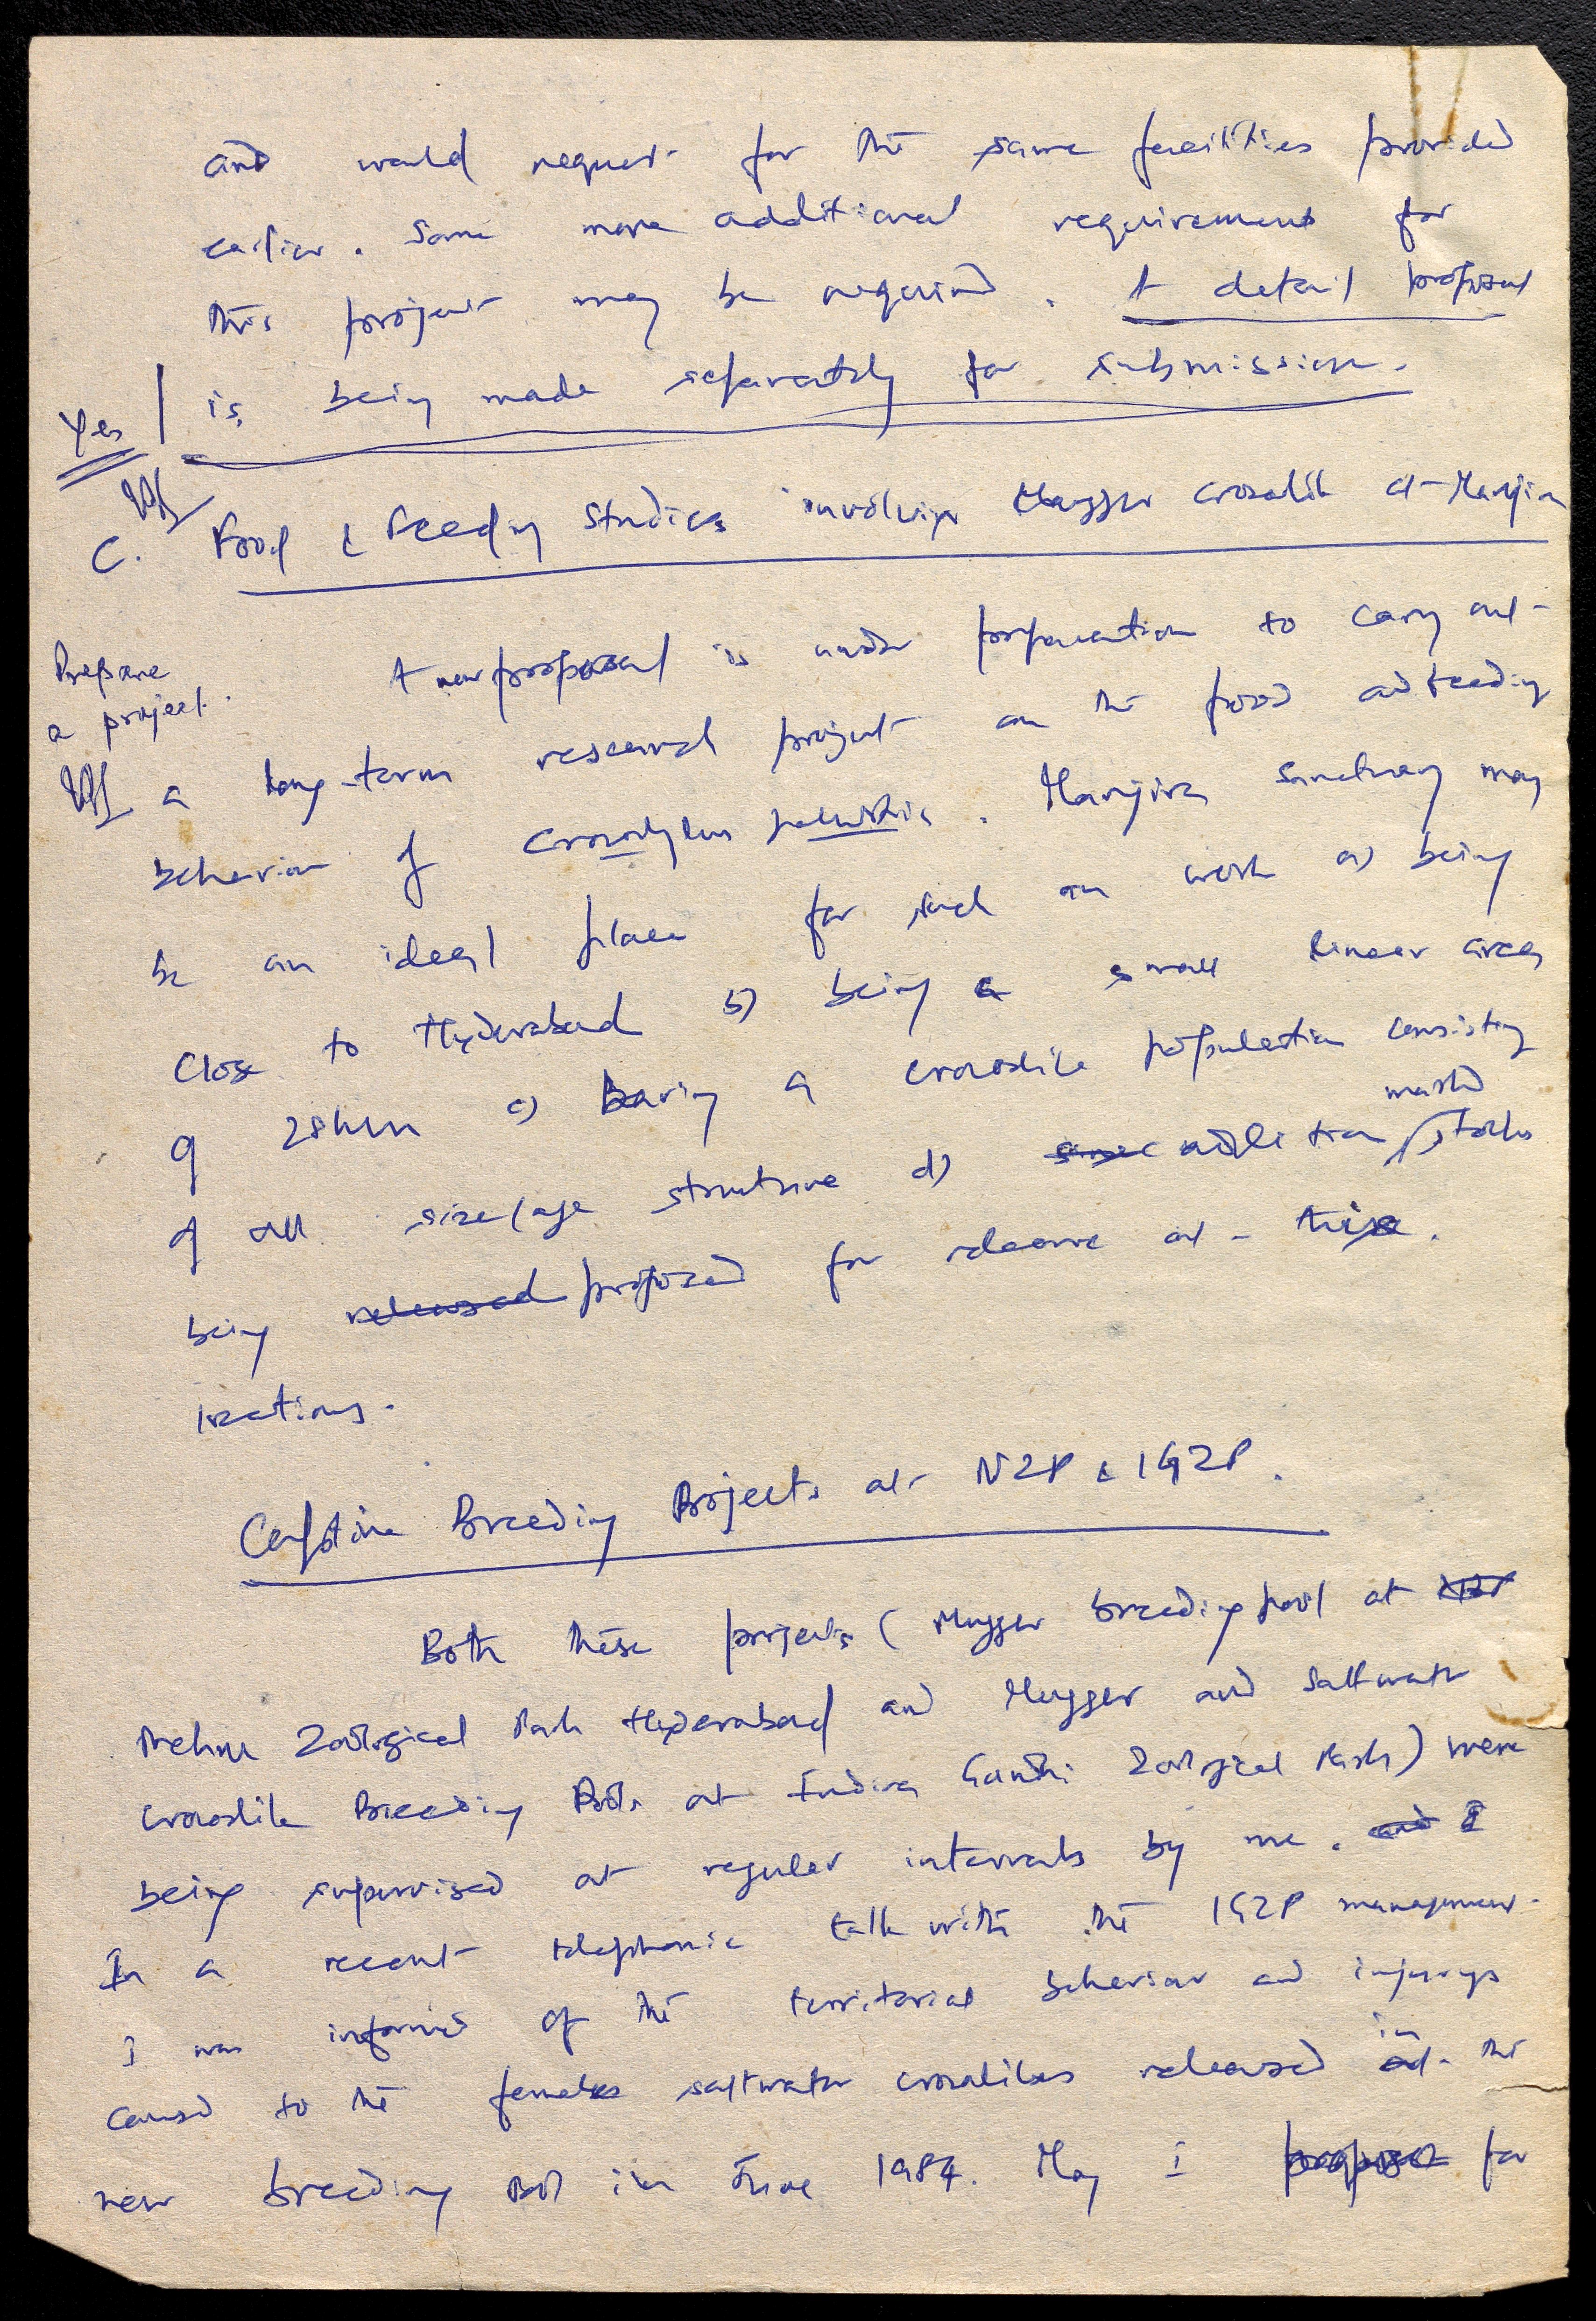 and would request for the same facilities provided
earlier. Some more additional requirements for
this project may be required. A detail proposal
Yes is being made separately for submission.
C. Food & Feeding Studies involving Mugger Crocodile at Manjira
Prepare
a project.
A new proposal is under preparation to carry out
a long-term research project on the food and feeding
behaviour of Crocodylus palustris. Manjira Sanctuary may
be an ideal place for such an work a) being
close to Hyderabad b) being a small linear area
of 28 km c) having a crocodile population consisting
marked
of all size/age structure d) addition stocks
being released proposed for release at these.
locations.
Captive Breeding Projects at NZP & IGZP.
Both these projects (Mugger breeding pool at NZP
Nehru Zoological Park Hyderabad and Mugger and Saltwater
Crocodile Breeding Pools at Indira Gandhi Zoological Park) were
being supervised at regular intervals by me. and I
In a recent telephonic talk with the IGZP management
I was informed of the territorial behaviour and injurys
in
caused to the females saltwater crocodiles released at the
new breeding pool in June 1984. May I propose for